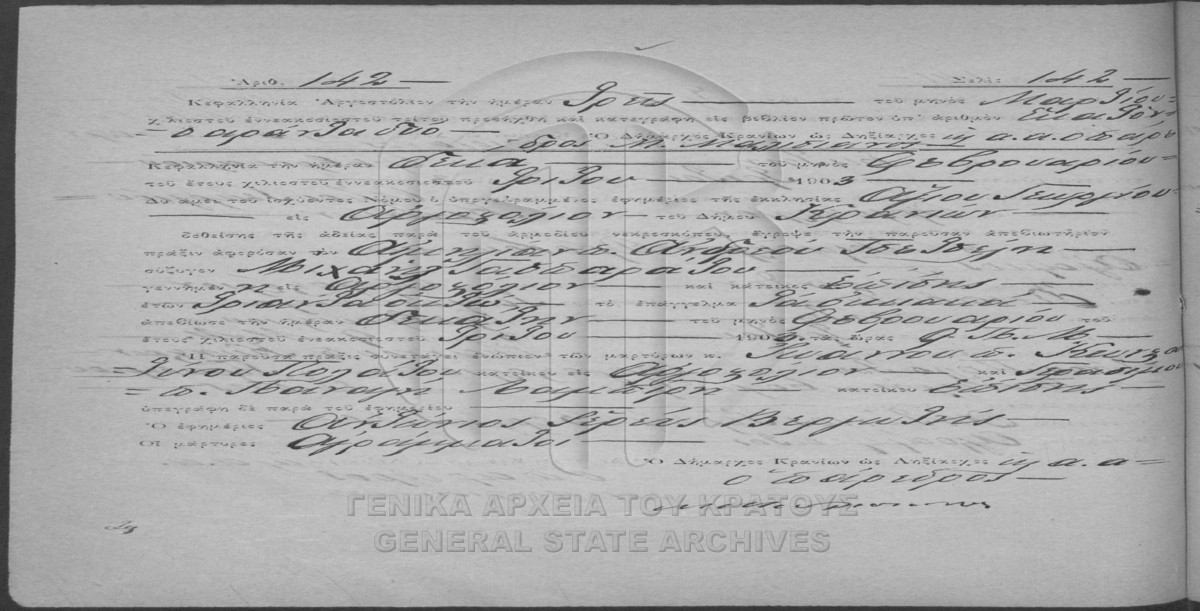 Ἀριθ. 142 — Σελὶς 142 —
Κεφαλληνία Ἀργοστόλιον τὴν ἡμέραν Τρεῖς — τοῦ μηνὸς Μαρτίου =
χιλιοστοῦ ἐννεακοσιοστοῦ τρίτου προσήχθη καὶ κατεγράφη εἰς βιβλίον πρῶτον ὑπ' ἀριθμὸν Ἑκατὸν
= σαράντα δύο — Ὁ Δήμαρχος Κρανίων ὡς Ληξίαρχος α. α. ὁ πάρε
δρος Μ.
Κεφαλληνία τὴν ἡμέραν Δέκα — τοῦ μηνὸς Φεβρουαρίου =
τοῦ ἔτους χιλιοστοῦ ἐννεακοσιοστοῦ Τρίτου — 1903 —
Δυνάμει τοῦ ἰσχύοντος Νόμου ὁ ὑπογεγραμμένος ἐφημέριος τῆς ἐκκλησίας Ἁγίου Γεωργίου
— εἰς Ἀργοστόλιον — τοῦ Δήμου Κρανίων —
δοθείσης τῆς ἀδείας παρὰ τοῦ ἁρμοδίου νεκροσκόπου, ἔγραψε τὴν παροῦσαν ἀποβιωτήριον
πρᾶξιν ἀφορῶσαν τὴν π. Ἀνδρέου —
σύζυγον Μιχαήλ —
γεννημένην εἰς Ἀργοστόλιον — καὶ κάτοικος Ἐκεῖσε —
ἐτῶν Τριάντα ὀκτὼ — τὸ ἐπάγγελμα —
ἀπεβίωσε τὴν ἡμέραν Δεκάτην — τοῦ μηνὸς Φεβρουαρίου τοῦ
ἔτους χιλιοστοῦ ἐνεακοσιοστοῦ Τρίτου — 1903. τὰς ὥρας Π. Μ. —
Ἡ παροῦσα πρᾶξις συνετάγει ἐνώπιον τῶν μαρτύρων κ. Ἰωάννου π.
κατοίκου εἰς Ἀργοστόλιον — καὶ Γερασίμου
= π. Παναγῆ — κατοίκου —
ὑπεγράφη δὲ παρὰ τοῦ ἐφημερίου —
Ὁ ἐφημέριος Ἀντώνιος Ἱερεὺς —
Οἱ μάρτυρες Ἀγράμματοι —
Ὁ Δήμαρχος Κρανίων ὡς Ληξίαρχος α. α =
ὁ πάρεδρος —
ΓΕΝΙΚΑ ΑΡΧΕΙΑ ΤΟΥ ΚΡΑΤΟΥΣ
GENERAL STATE ARCHIVES